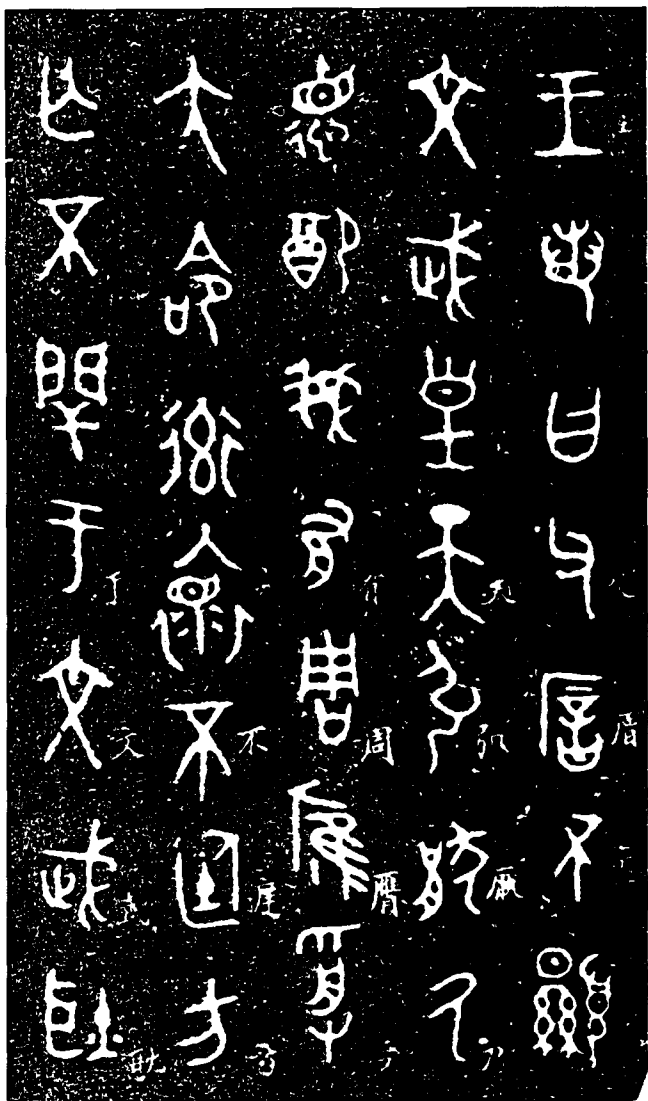 王若曰父厝不顯
文武皇天弘厭厥
德配我有周膺受
大命率褱不廷方
亡不閈于文武耿